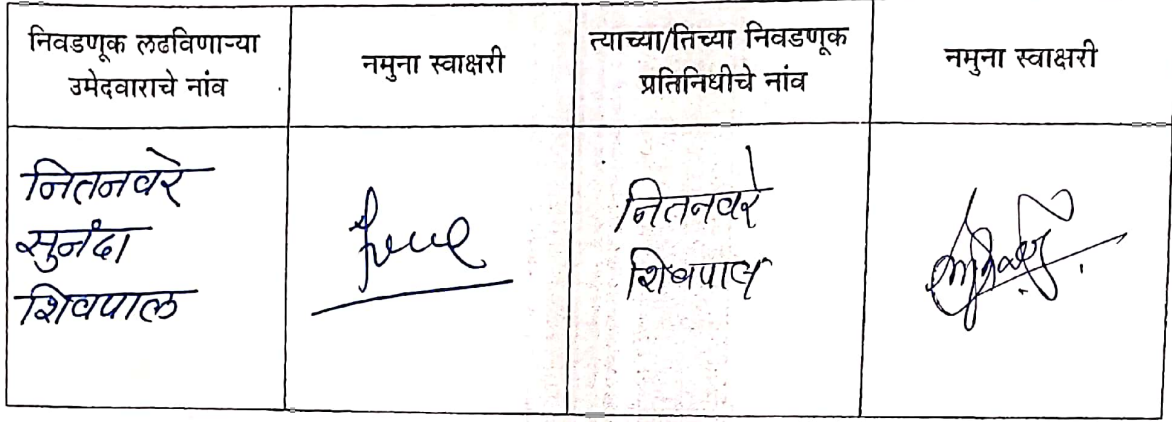 निवडणूक लढविणाऱ्या
उमेदवाराचे नांव
नमुना स्वाक्षरी
त्याच्या/तिच्या निवडणूक
प्रतिनिधीचे नांव
नमुना स्वाक्षरी
नितनवरे
सुनंदा
शिवपाल
नितनवरे
शिवपाल